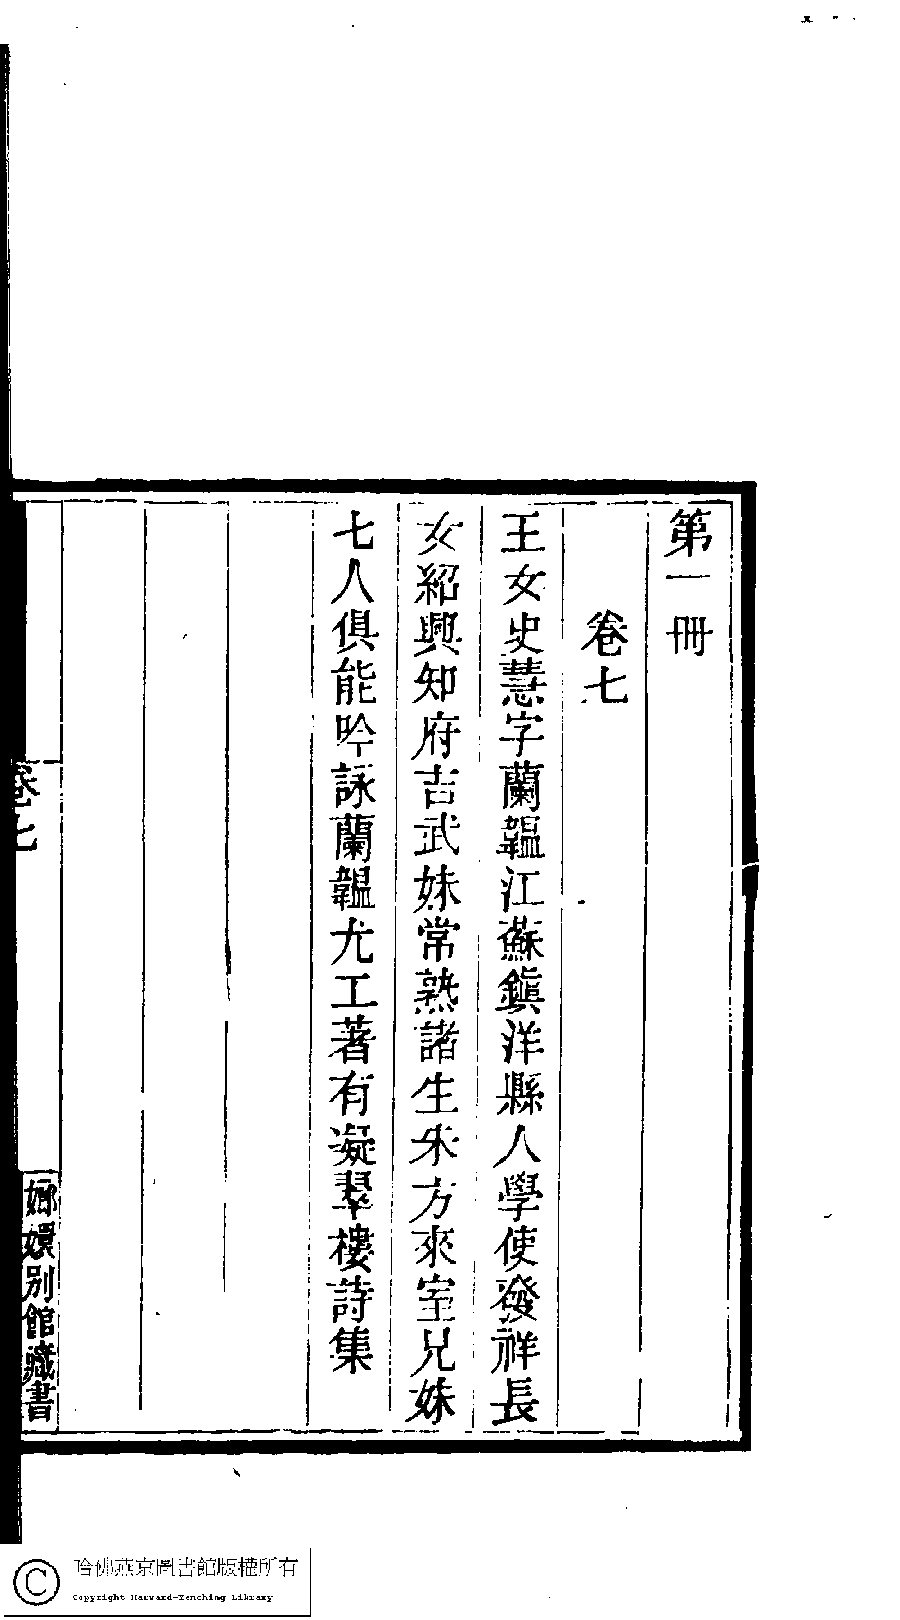 第一冊
卷七
王女史慧字蘭韞江蘇鎮洋縣人學使發祥長
女紹興知府吉武妹常熟諸生朱方來室兄妹
七人俱能吟詠蘭韞尤工著有凝翠樓詩集
卷七
嫏嬛別館藏書
哈佛燕京圖書館版權所有
Copyright Harvard-Yenching Library